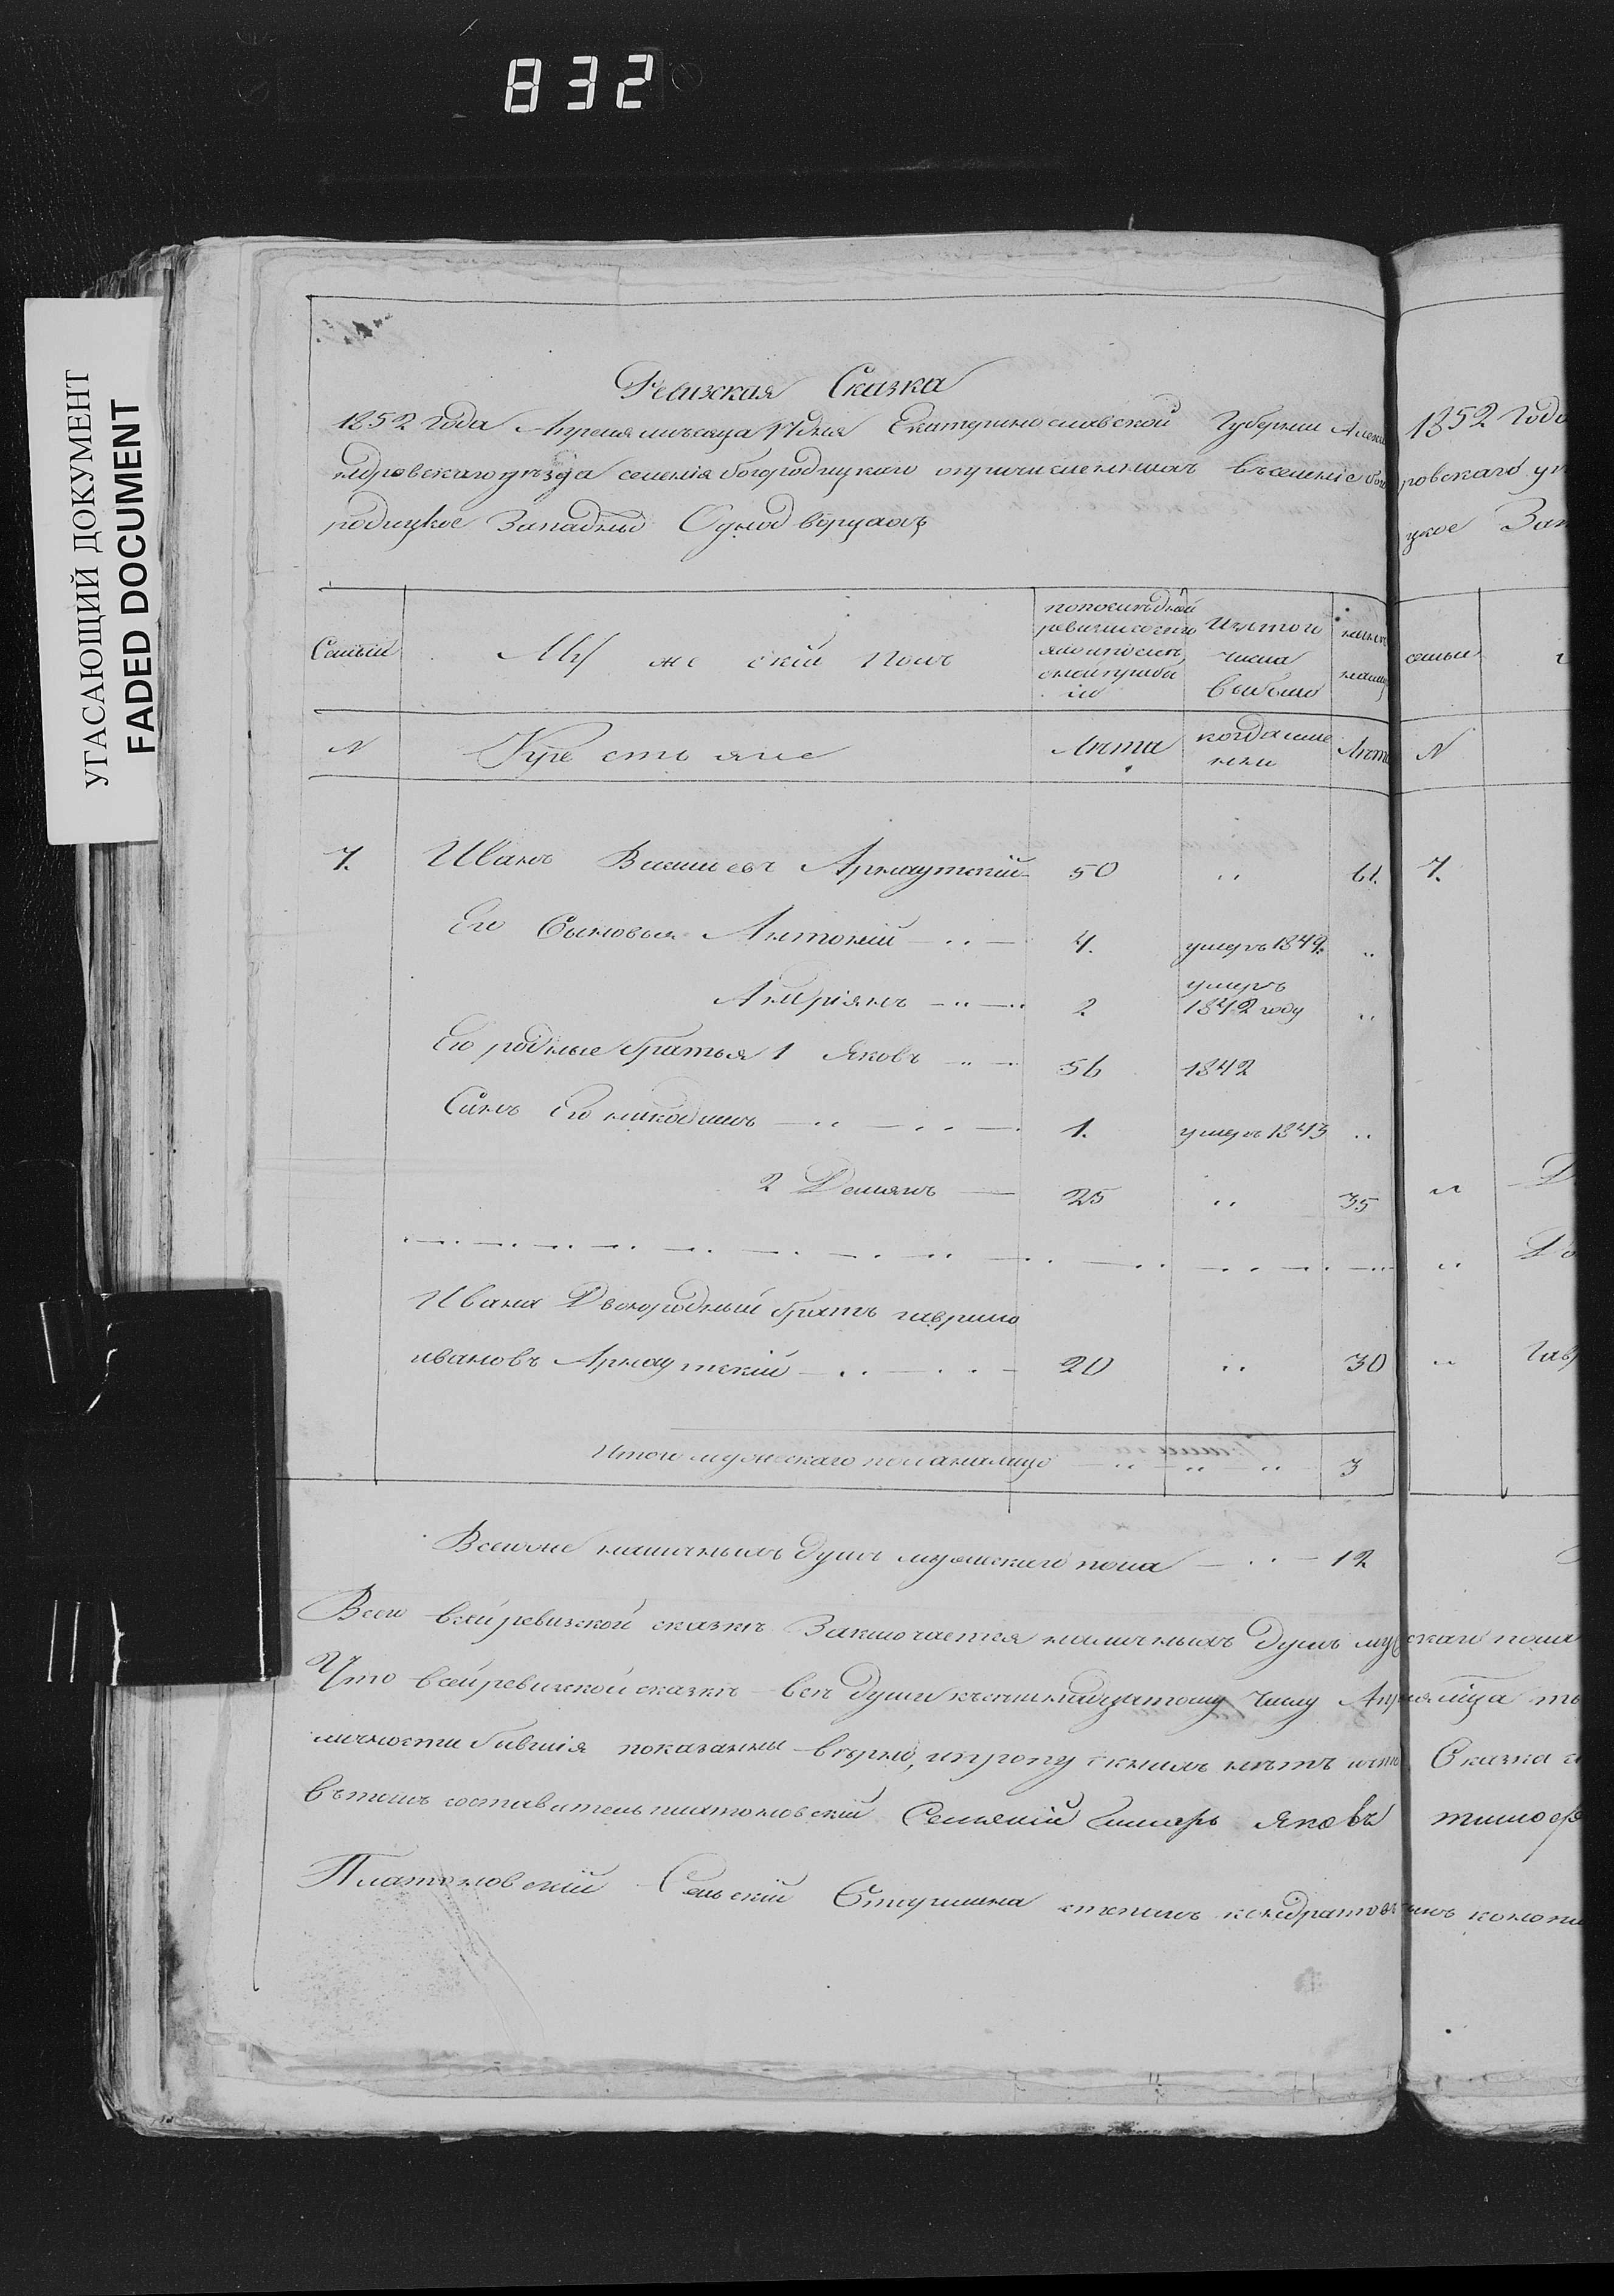 832
УГАСАЮЩИЙ ДОКУМЕНТ
FADED DOCUMENT
Ревизская Сказка
1852 Года Апреля месяца 17 дня Екатеринославской Губернии Алекса
ндровскаго уезда селенія богородицкаго опричисленныхъ въ селеніе бого
родицкое Западныхъ Однодворцахъ
Семьи Мужескій полъ по последней ревизіи состо яло и после оной прибы ло Изъ того числа выбыло ныне на лицо
N Крестьяне Лета когда име нно Лета
7. Иванъ Васильевъ Арнаутскій 50 " 61.
Его Сыновья Антоній 4. умеръ 1849. "
Андріянъ 2 умеръ 1842 году "
Его родные братья 1 Яковъ 56 1842
Сынъ Его никодимъ 1. умеръ 1843 "
2 Демянъ 25 " 35
Ивана Двоюродный братъ гаврило
ивановъ Арнаутскій 20 " 30
Итого мужескаго пола налицо " " " 3
Всего же наличныхъ душъ мужескаго пола 12
Всего в сей ревизской сказке Заключается наличныхъ душъ му
Что в сей ревизской сказке все души к семнадцатому числу Апр
личности бывшія показанны верно, и пропу скныхъ нетъ
въ томъ составитель платоновскій Селький писарь яковъ
Платоновскій Сельскій Старшина степанъ кондратов
1852 Года
ровскаго у
цкое Зап
семьи
N
7.
" Д
" До
" Гав
скаго пола
Сказка
тимоф